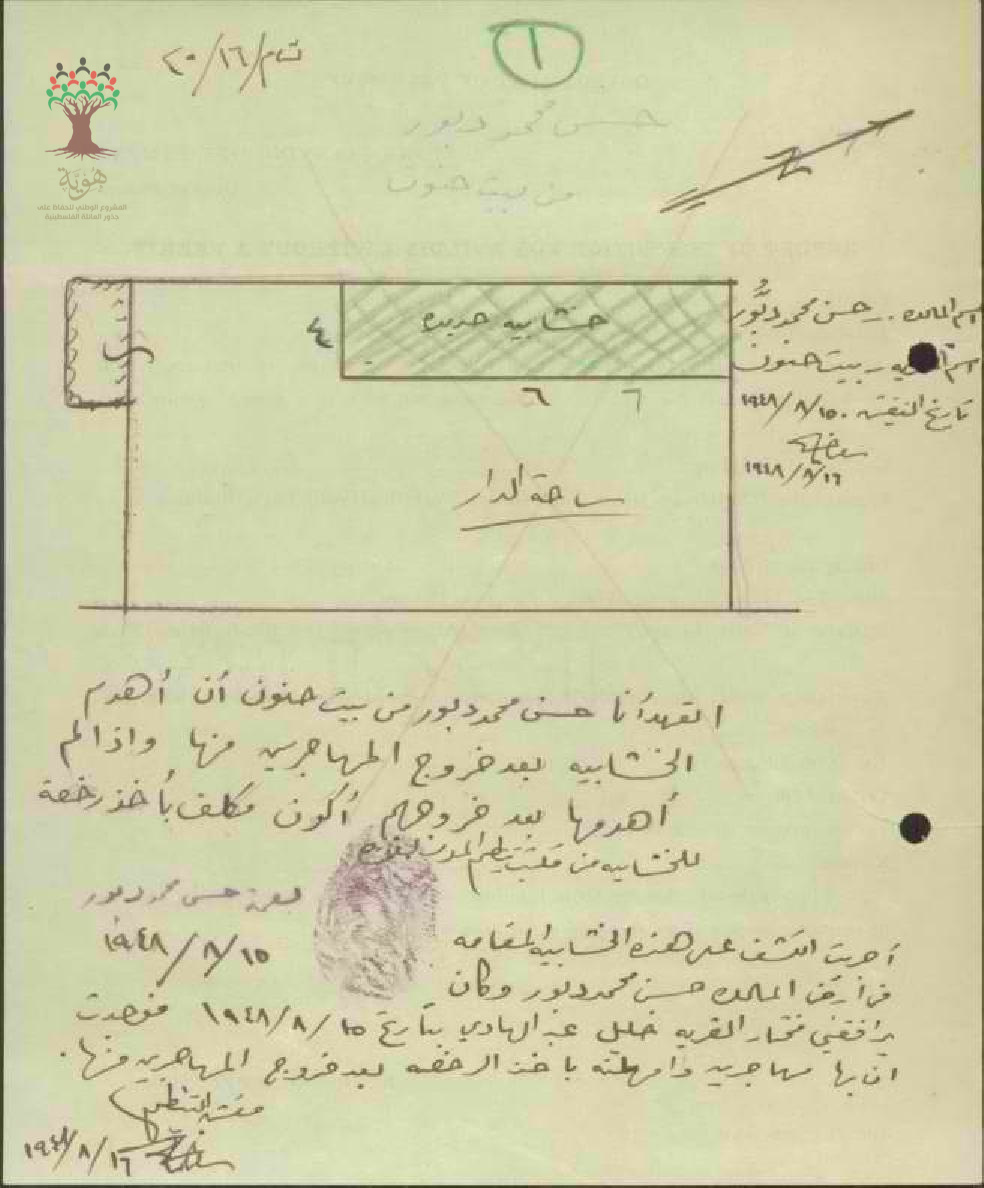 ١
٢٠/١٦/
حسن محمد دبور
من بيت حنون
هويّة
المشروع الوطني للحفاظ على
جذور العائلة الفلسطينية
خشابيه جديده
٤
٦
٦
ساحة الدار
اسم المالك. حسن محمد دبُّور
اسم القريه - بيت حنون
تاريخ التفتيش. ١٩٤٨/٨/١٥
١٩٤٨/٨/١٦
اتعهد أنا حسن محمد دبور من بيت حنون أن أهدم
الخشابيه بعد خروج المهاجرين منها واذا لم
أهدمها بعد خروجهم أكون مكلف بأخذ رخصة
للخشابيه من مكتب تنظيم المدن بغزه
بصمة حسن محمد دبور
١٩٤٨/٨/١٥
أجريت الكشف على هذه الخشابيه المقامه
في أرض المالك حسن محمد دبور وكان
يرافقني مختار القريه خليل عبد الهادي بتاريخ ١٩٤٨/٨/١٥ فوجدت
ان بها مهاجرين وامهلته باخذ الرخصه بعد خروج المهاجرين منها.
مفتش التنظيم
١٩٤٨/٨/١٦